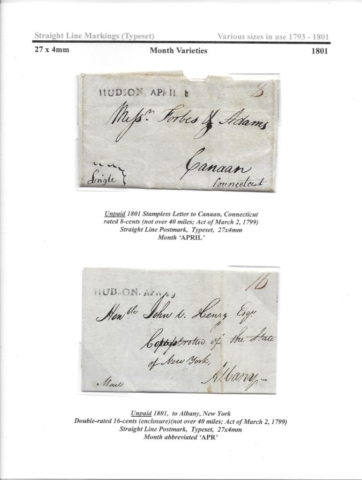 Straight Line Markings (Typeset) Various sizes in use 1793 - 1801
27 x 4mm Month Varieties 1801
HUDSON, APRIL 8
Messrs. Forbes & Adams
Canaan
Connecticut
Single
Unpaid 1801 Stampless Letter to Canaan, Connecticut
rated 8-cents (not over 40 miles; Act of March 2, 1799)
Straight Line Postmark, Typeset, 27x4mm
Month 'APRIL'
HUDSON, APR
16
Honble John V. Henry Esqr
of the State
of New York
Albany
Unpaid 1801, to Albany, New York
Double-rated 16-cents (enclosure)(not over 40 miles; Act of March 2, 1799)
Straight Line Postmark, Typeset, 27x4mm
Month abbreviated 'APR'